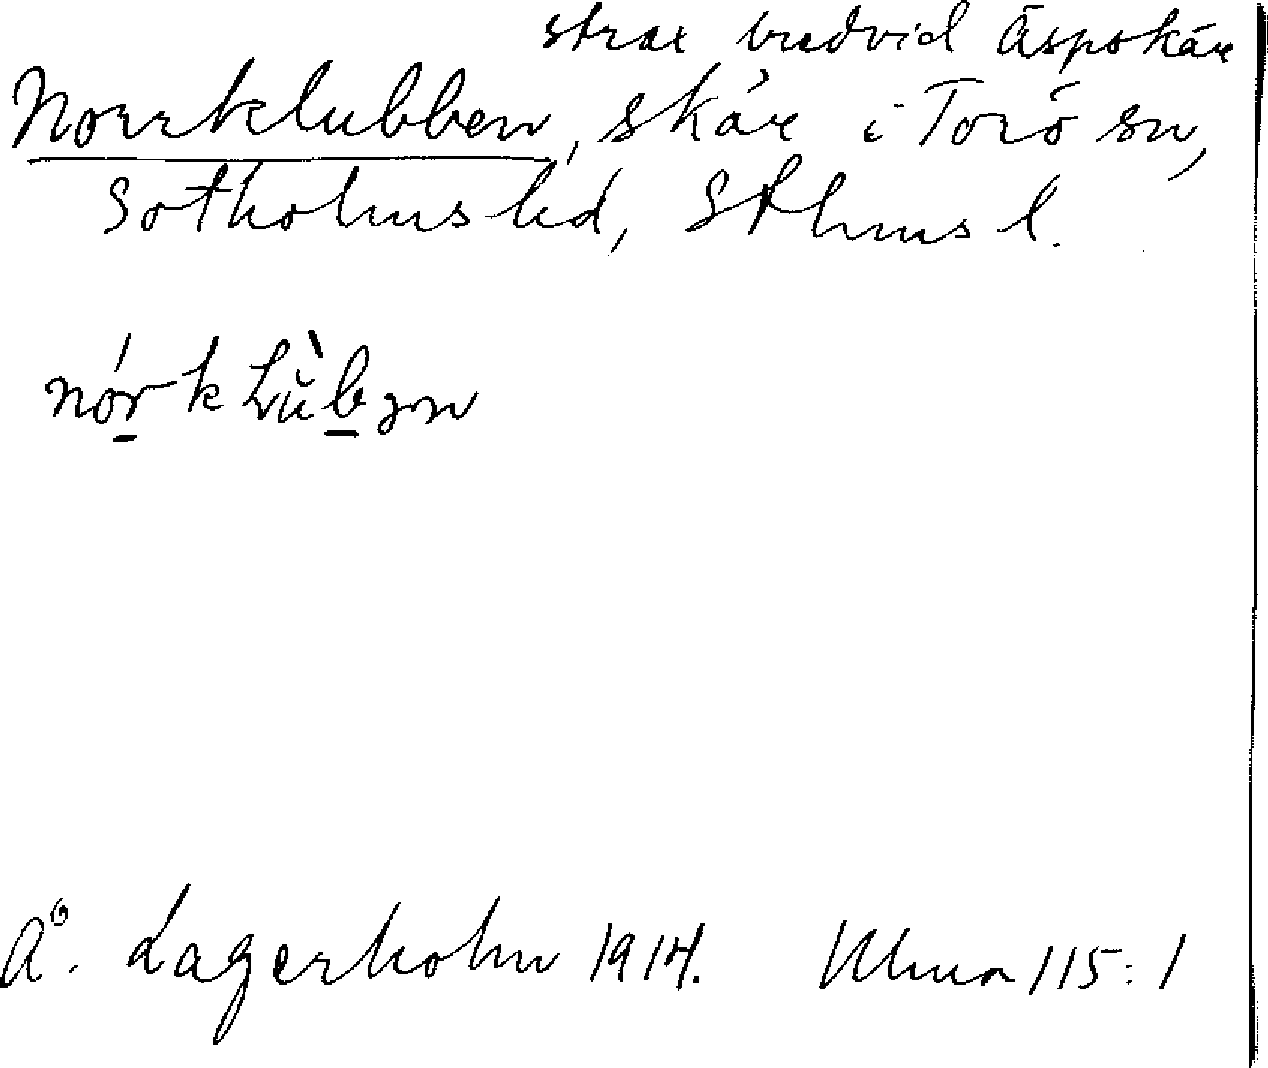 strax bredvid Äspskär
Norrklubben, skär i Torö sn,
Sotholms hd, Sthms l.
Å. Lagerholm 1914. Ulma 115:1